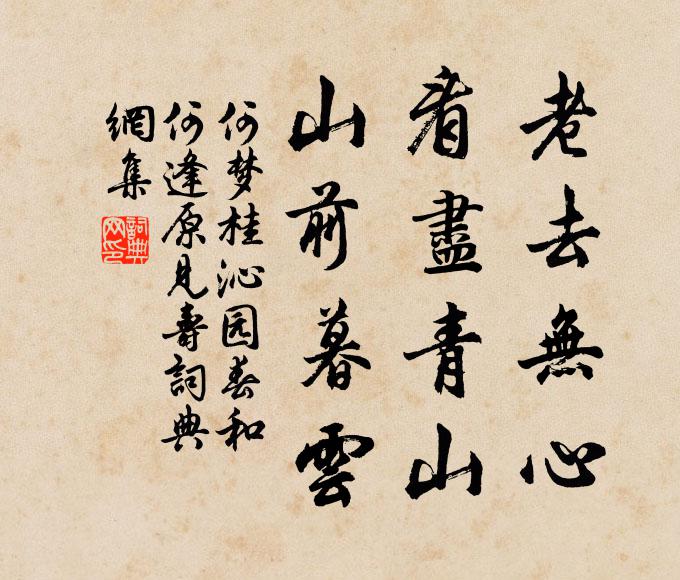 老去無心
看盡青山
山前暮雲
何梦桂沁园春和
何逢原見壽詞典
網集
詞典網印